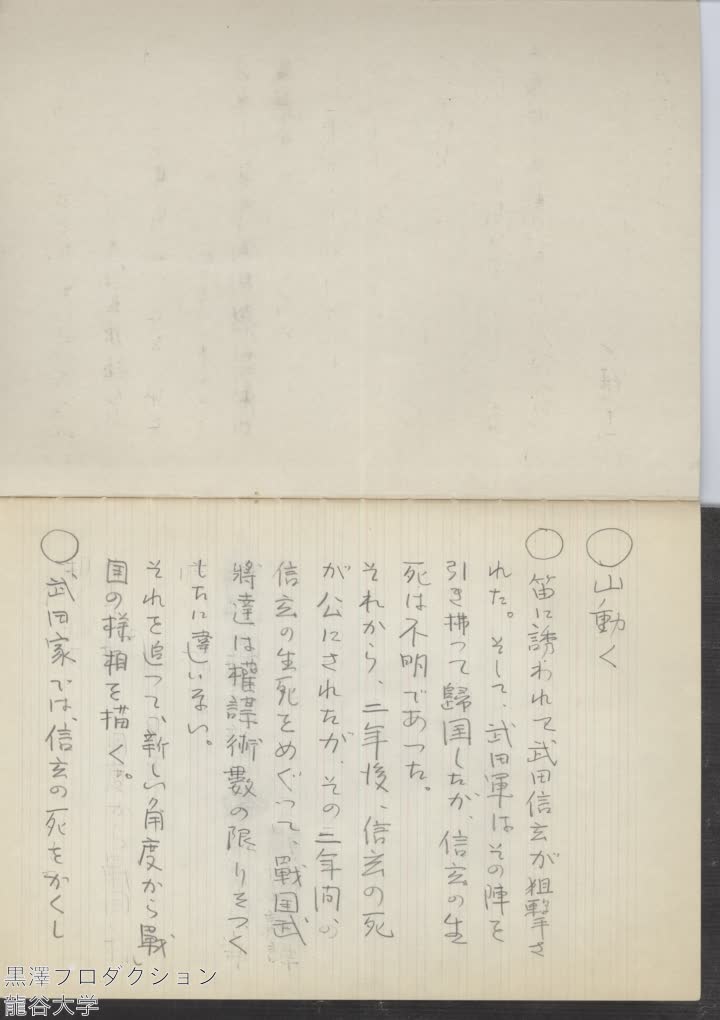 ○山動く
○笛に誘われて武田信玄が狙撃さ
れた。そして、武田軍はその陣を
引き拂って歸国したが、信玄の生
死は不明であった。
それから、二年後、信玄の死
が公にされたが、その三年間の
信玄の生死をめぐって、戰国武
將達は權謀術數の限りをつく
したに違いない。
それを追って、新しい角度から戰
国の様相を描く。
○武田家では、信玄の死をかくし
黒澤プロダクション
龍谷大学